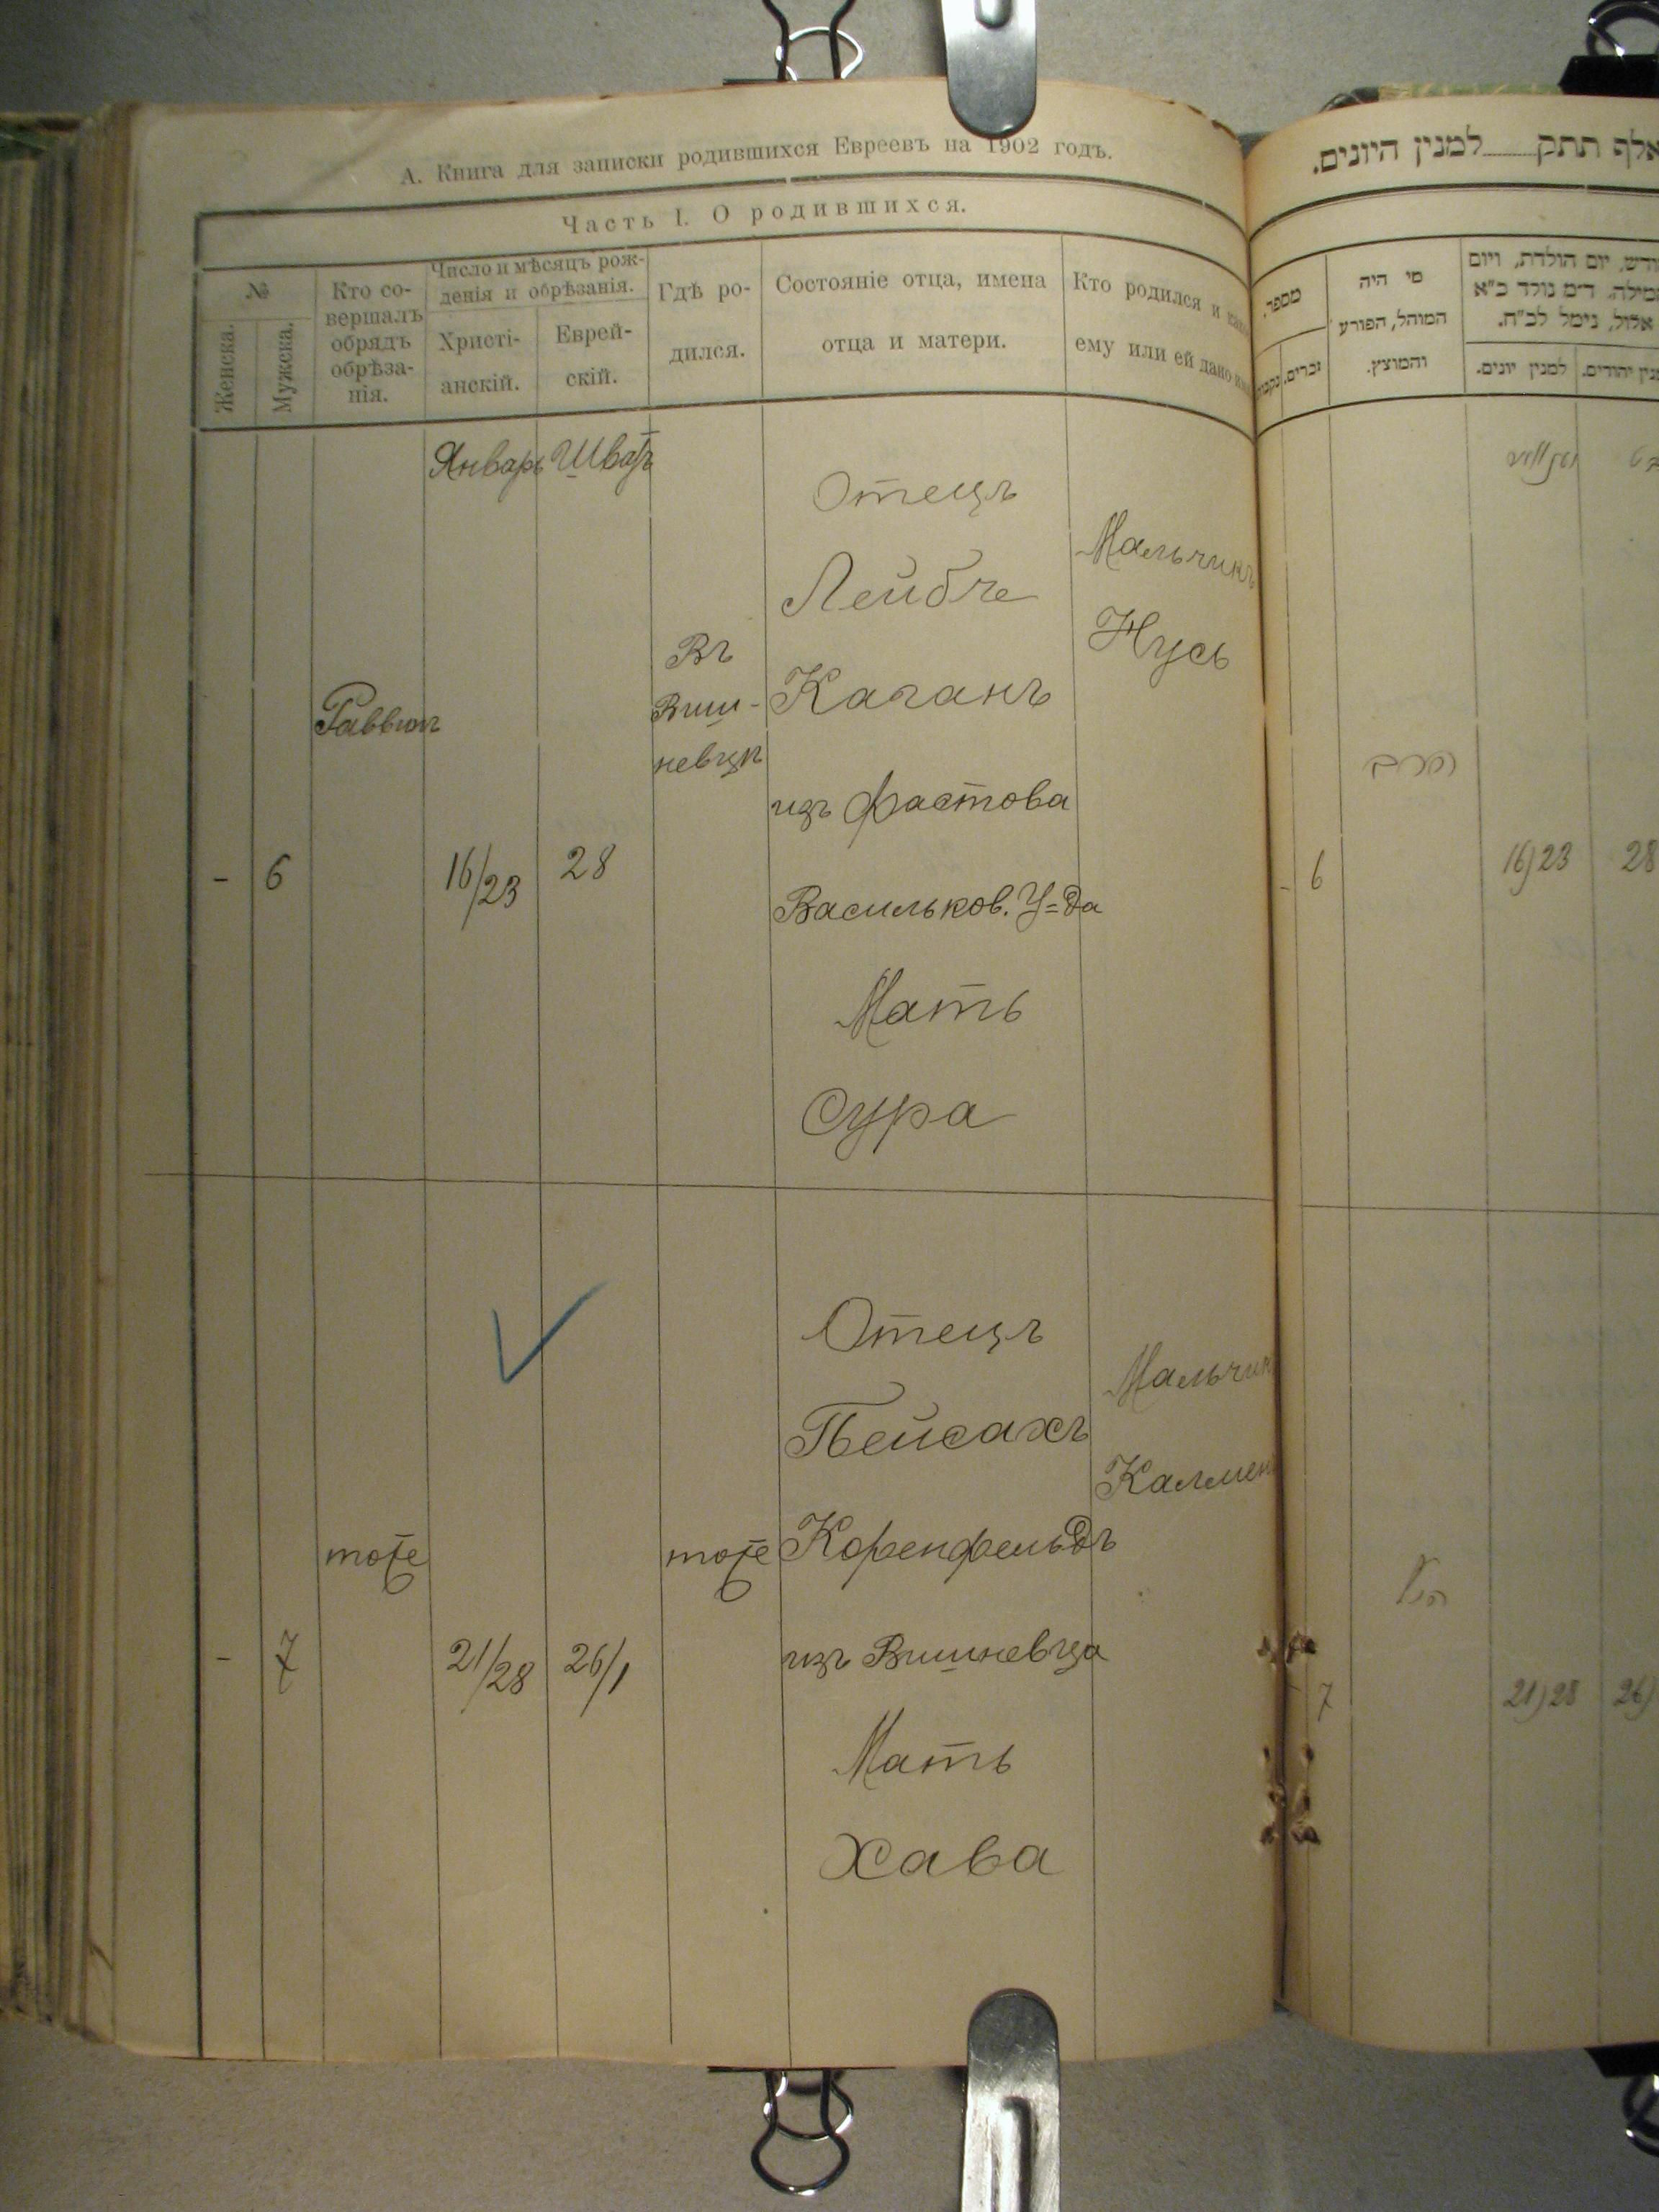 А. Книга для записки родившихся Евреевъ на 1902 годъ.
Часть I. О родившихся.
№
Женска.
Мужска.
Кто со-
вершалъ
обрядъ
обрѣза-
нія.
Число и мѣсяцъ рож-
денія и обрѣзанія.
Христі-
анскій.
Еврей-
скій.
Гдѣ ро-
дился.
Состояніе отца, имена
отца и матери.
Кто родился и
ему или ей дано
Январь Шватъ
-
6
Раввинъ
16/23
28
Въ
Виш-
невцѣ
Отецъ
Лейбче
Каганъ
изъ Фастова
Васильков. У=да
Мать
Сура
Мальчикъ
Нусь
-
7
тоже
21/28
26/1
тоже
Отецъ
Пейсахъ
Коренфельдъ
изъ Вишневца
Мать
Хава
Мальчик
Калмен
אלף תתק למנין היונים.
מספר.
זכרים.
מי היה
המוהל, הפורע
והמוצץ.
יום הולדת, ויום
ד״מ נולד כ״א
אלול, נימל לכ״ח.
למנין יונים.
יהודים.
-
6
הרב
16)23
28
7
הנ״ל
21)28
26)